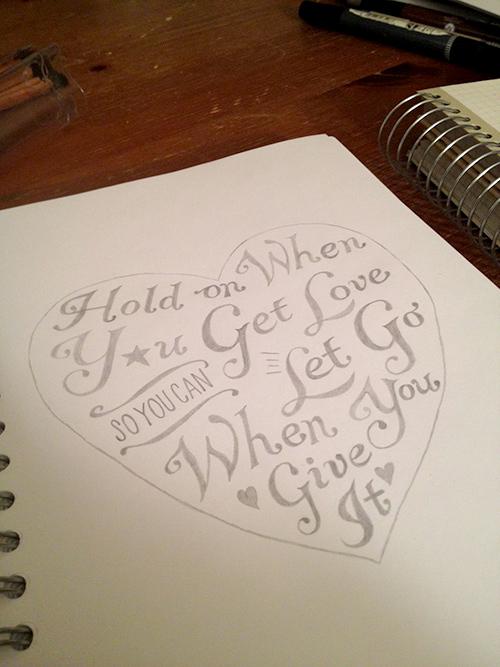 Hold on When
Y★u Get Love
SO YOU CAN
Let Go
When You
Give
It